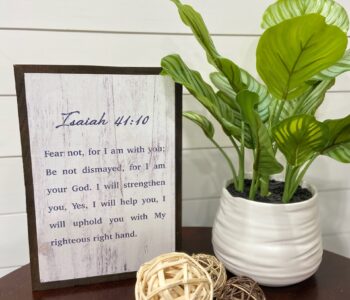 Isaiah 41:10
Fear not, for I am with you;
Be not dismayed, for I am
your God. I will strengthen
you, Yes, I will help you, I
will uphold you with My
righteous right hand.